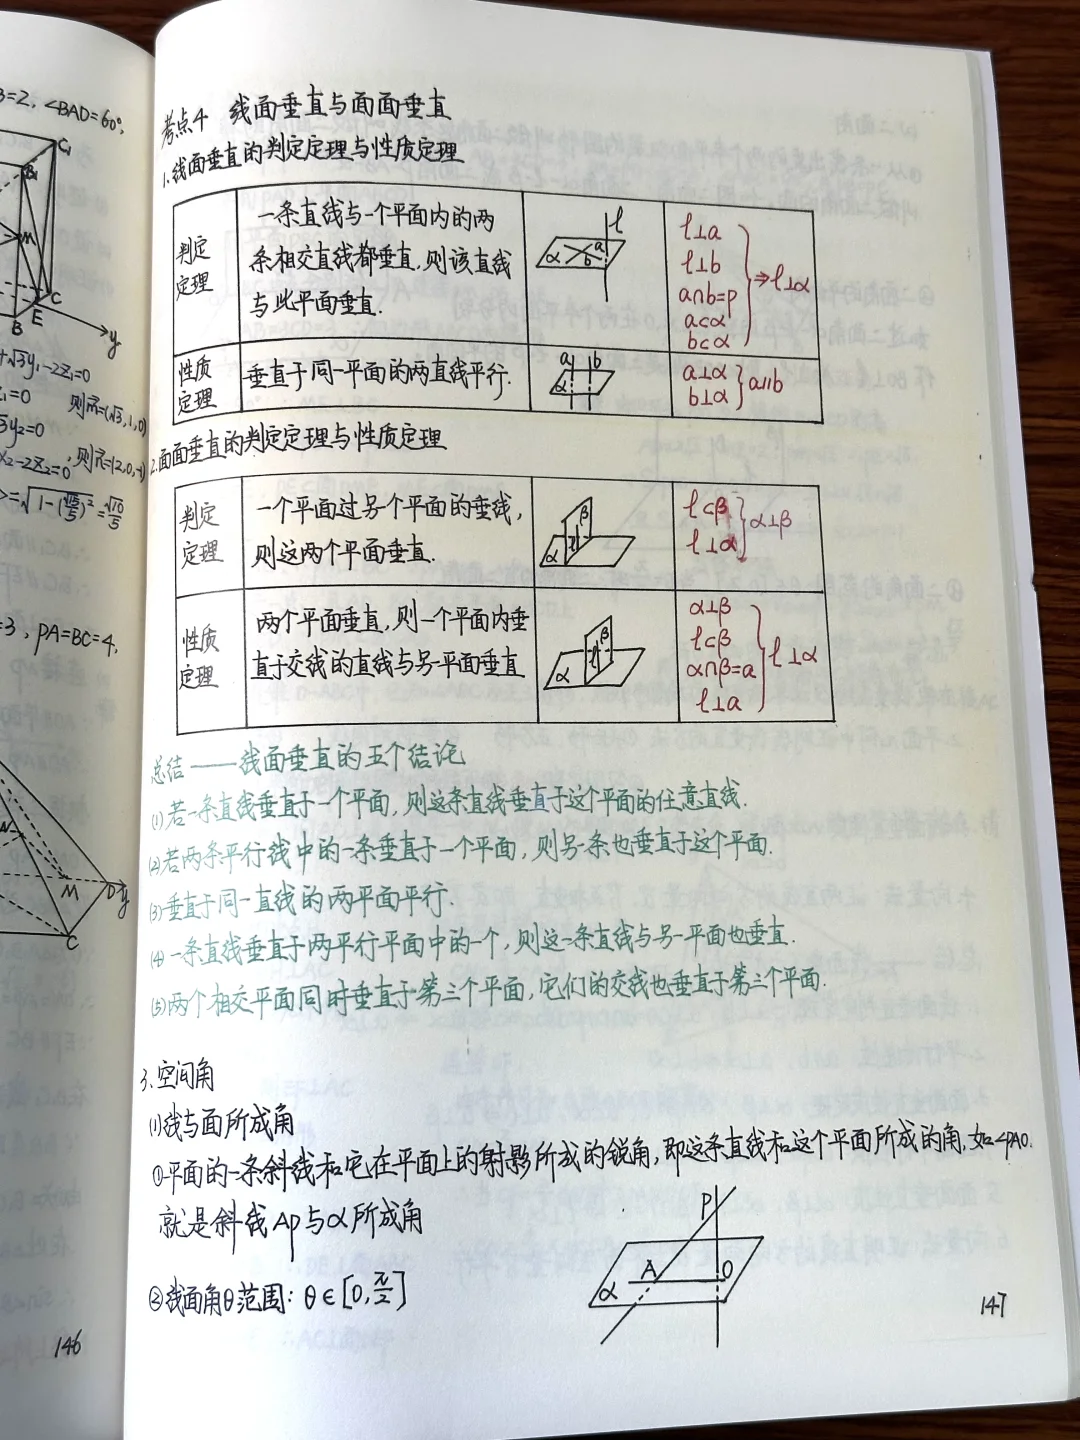 B=2, ∠BAD=60°,
C₁
B₁
M
C
B E
y
+√3y₁-2z₁=0
₁=0 则n⃗=(√3,1,0)
y₂=0
x₂-2z₂=0, 则n⃗=(2,0,-1)
=3, PA=BC=4,
N
M
D y
C
146
考点4 线面垂直与面面垂直
1.线面垂直的判定定理与性质定理
判定定理
一条直线与一个平面内的两
条相交直线都垂直,则该直线
与此平面垂直.
l
α a b
l⊥a
l⊥b
a∩b=P
a⊂α
b⊂α
⇒l⊥α
性质定理
垂直于同一平面的两直线平行.
a b
α
a⊥α
b⊥α
a∥b
2.面面垂直的判定定理与性质定理
判定定理
一个平面过另个平面的垂线,
则这两个平面垂直.
β
α l
l⊂β
l⊥α
α⊥β
性质定理
两个平面垂直,则一个平面内垂
直于交线的直线与另一平面垂直
β
α l
α⊥β
l⊂β
α∩β=a
l⊥a
l⊥α
总结——线面垂直的五个结论
(1)若一条直线垂直于一个平面,则这条直线垂直于这个平面的任意直线.
(2)若两条平行线中的一条垂直于一个平面,则另一条也垂直于这个平面.
(3)垂直于同一直线的两平面平行.
(4)一条直线垂直于两平行平面中的一个,则这一条直线与另一平面也垂直.
(5)两个相交平面同时垂直于第三个平面,它们的交线也垂直于第三个平面.
3.空间角
(1)线与面所成角
①平面的一条斜线和它在平面上的射影所成的锐角,即这条直线和这个平面所成的角,如∠PAO.
就是斜线AP与α所成角
②线面角θ范围:θ∈[0,π/2]
P
A O
α
147